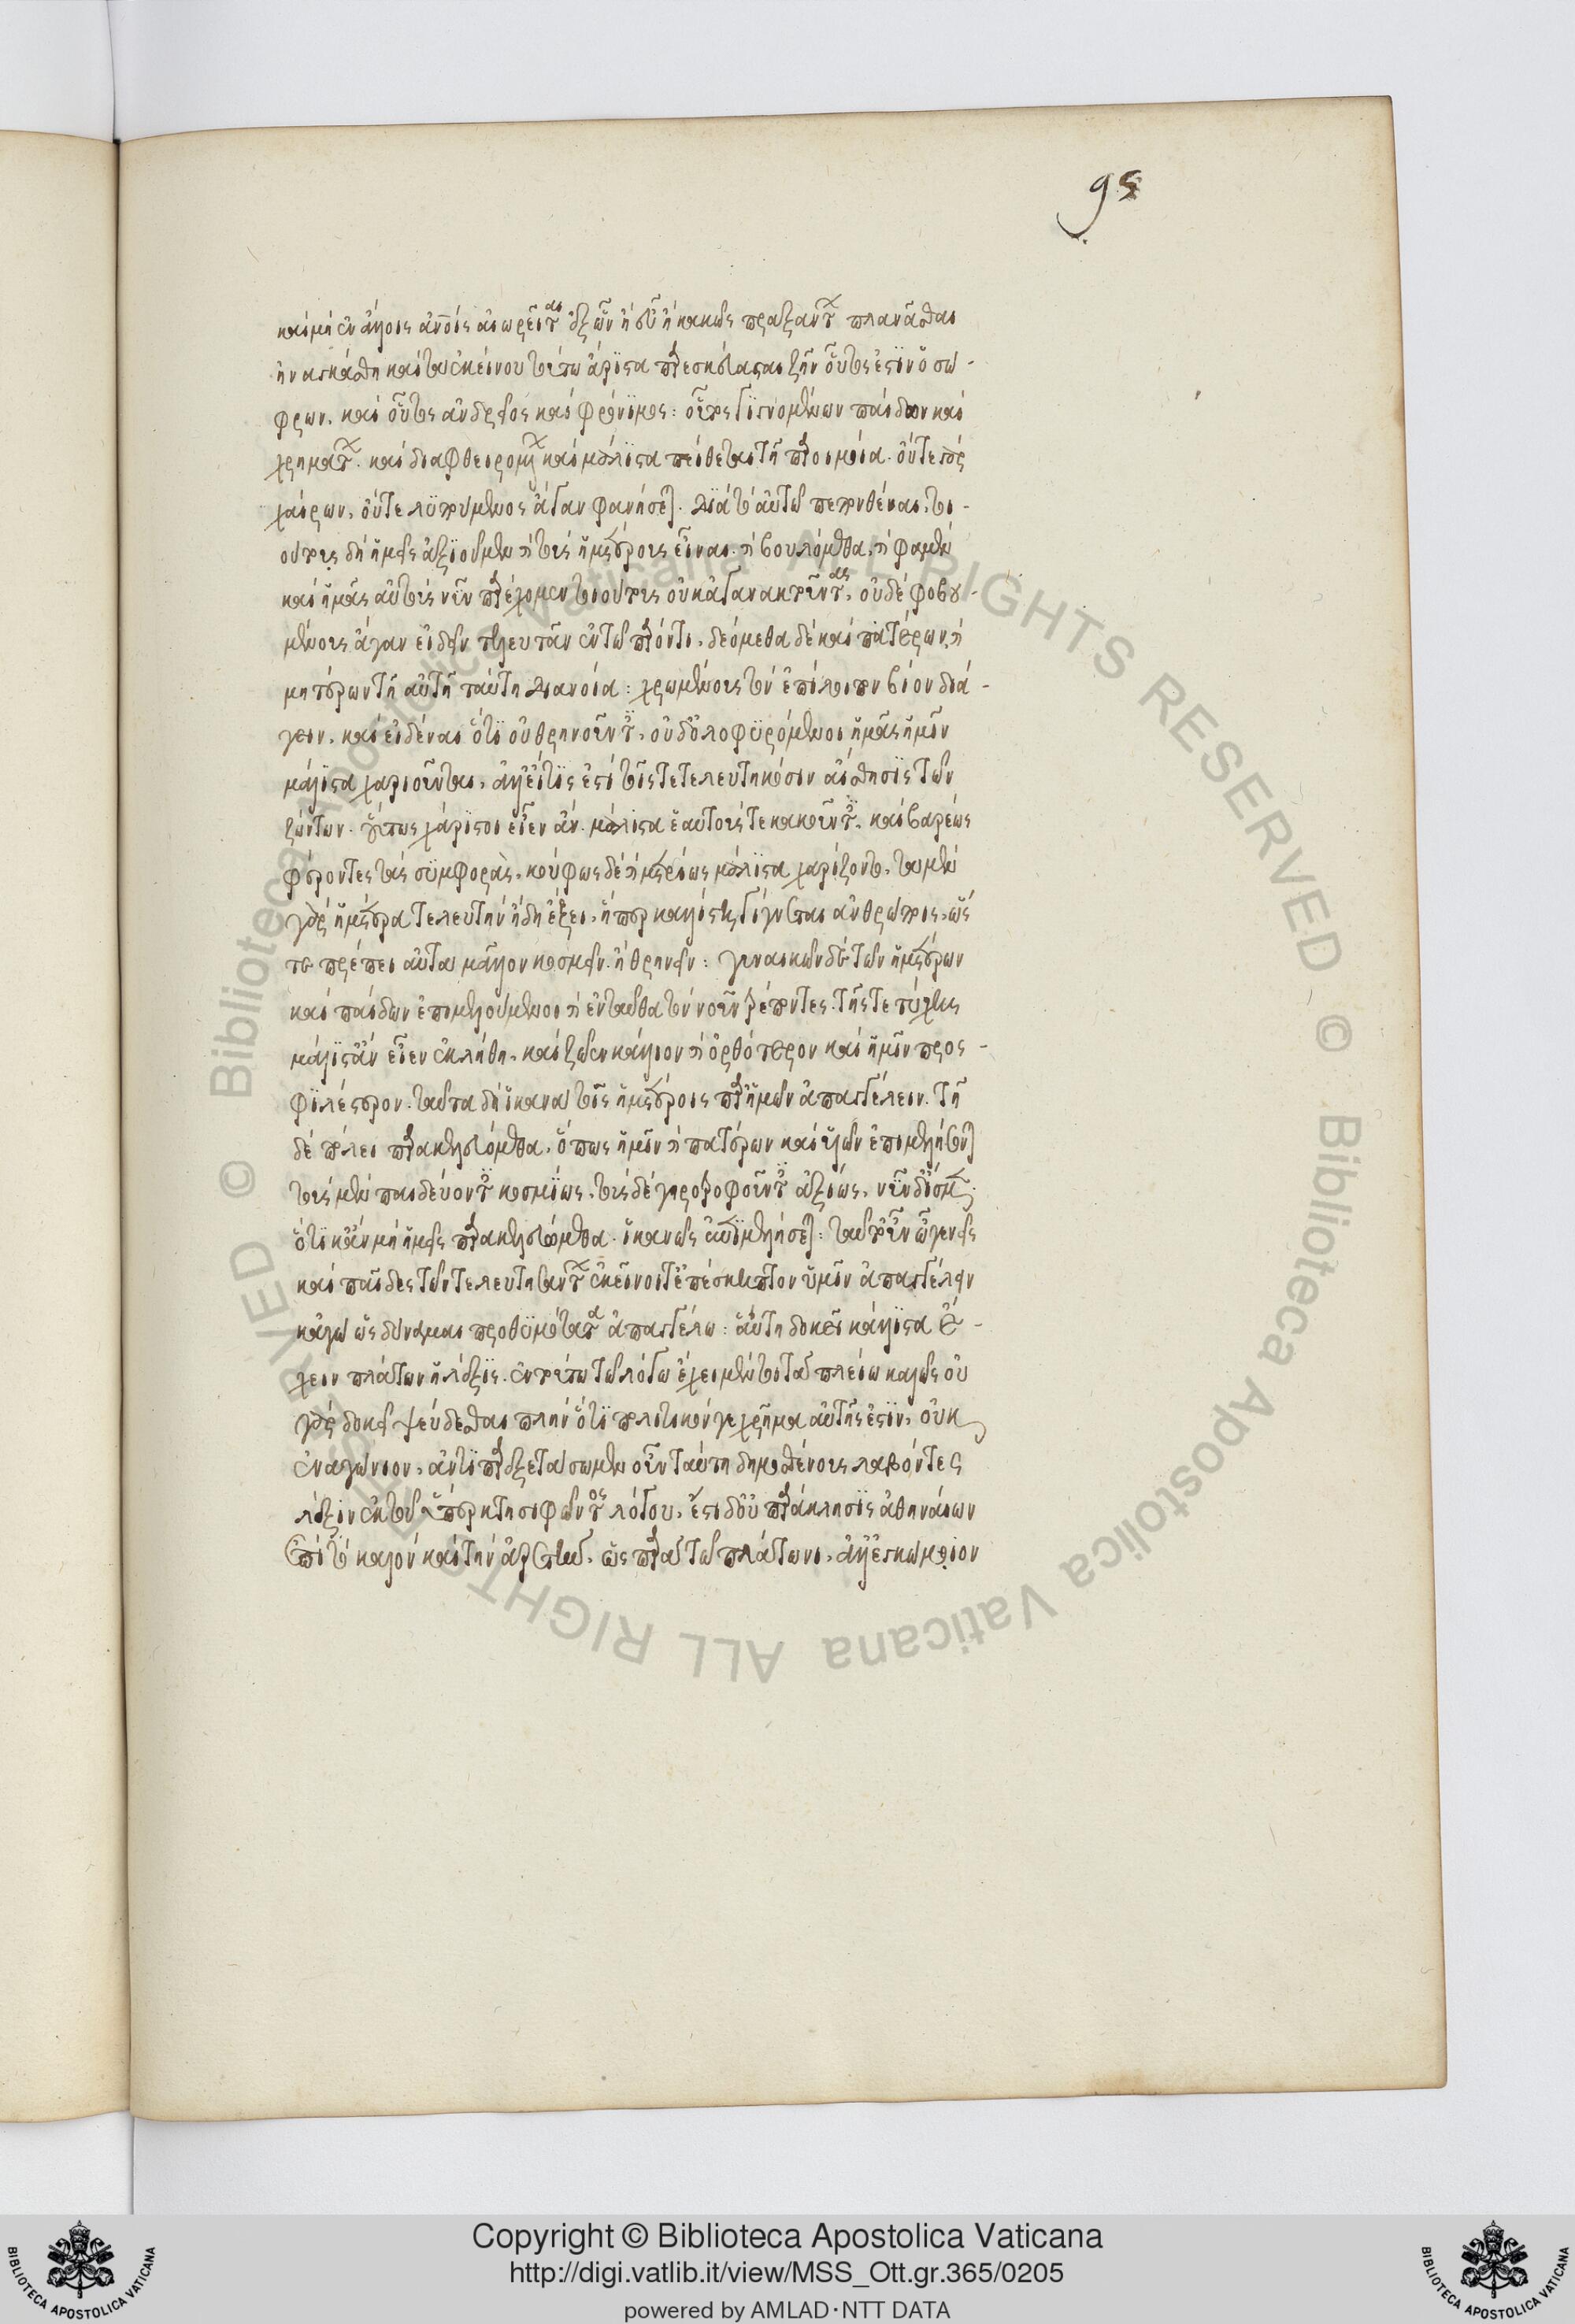 95
καὶ μὴ ἐν ἄλλοις ἀνθρώποις αἰωρεῖται ἐξ ὧν ἢ εὖ ἢ κακῶς πραξάντων πλανᾶσθαι
ἠναγκάσθη καὶ τὰ ἐκείνου τούτῳ ἄριστα παρεσκεύασται ζῆν οὗτός ἐστιν ὁ σώ-
φρων. καὶ οὗτος ἀνδρεῖος καὶ φρόνιμος: οὗτος γιγνομένων παίδων καὶ
χρημάτων. καὶ διαφθειρομένων καὶ μάλιστα πείθεται τῇ παροιμία. οὔτε γὰρ
χαίρων, οὔτε λυπούμενος ἄγαν φανήσεται. διὰ τὸ αὑτῷ πεποιθέναι, τοι-
ούτους δὴ ἡμεῖς ἀξιοῦμεν καὶ τοὺς ἡμετέρους εἶναι. καὶ βουλόμεθα, καὶ φαμὲν
καὶ ἡμᾶς αὐτοὺς νῦν παρέχομεν τοιούτους οὐκ ἀγανακτοῦντας, οὐδὲ φοβου-
μένους ἄγαν εἰ δεῖ τελευτᾶν ἐν τῷ παρόντι, δεόμεθα δὲ καὶ πατέρων, καὶ
μητέρων τῇ αὐτῇ ταύτη διανοία: χρωμένους τὸν ἐπίλοιπον βίον διά-
γειν. καὶ εἰδέναι ὅτι οὐ θρηνοῦντες, οὐδ' ὀλοφυρόμενοι ἡμᾶς ἡμῖν
μάλιστα χαριοῦνται, ἀλλ' εἴ τις ἐστὶ τοῖς τετελευτηκόσιν αἴσθησις τῶν
ζώντων. οὕτως ἀχάριστοι εἶεν ἄν. μάλιστα ἑαυτούς τε κακοῦντες. καὶ βαρέως
φέροντες τὰς συμφορὰς, κούφως δὲ καὶ μετρίως μάλιστα χαρίζοντο, τὰ μὲν
γὰρ ἡμέτερα τελευτὴν ἤδη ἕξει, ἥπερ καλλίστη γίγνεται ἀνθρώποις, ὥσ
τε πρέπει αὐτὰ μᾶλλον κοσμεῖν. ἢ θρηνεῖν: γυναικῶν δὲ τῶν ἡμετέρων
καὶ παίδων ἐπιμελούμενοι καὶ ἐνταῦθα τὸν νοῦν τρέποντες. τῆς τε τύχης
μάλιστ' ἂν εἶεν ἐν λήθη, καὶ ζῷεν κάλλιον καὶ ὀρθότερον καὶ ἡμῖν προς-
φιλέστερον. ταῦτα δὴ ἱκανὰ τοῖς ἡμετέροις παρ' ἡμῶν ἀπαγγέλλειν. τῇ
δὲ πόλει παρακελευόμεθα, ὅπως ἡμῖν καὶ πατέρων καὶ υἱῶν ἐπιμελήσονται
τοὺς μὲν παιδεύοντες κοσμίως, τοὺς δὲ γηροτροφοῦντες ἀξίως, νῦν δ' ἴσμεν
ὅτι κἂν μὴ ἡμεῖς παρακελευώμεθα. ἱκανῶς ἐπιμελήσεται: ταῦτ' οὖν ὦ γονεῖς
καὶ παῖδες τῶν τελευτησάντων ἐκεῖνοί τ' ἐπέσκηπτον ὑμῖν ἀπαγγέλλειν
κἀγὼ ὡς δύναμαι προθυμότατα ἀπαγγέλλω: αὕτη δοκεῖ κάλλιστα ἔ-
χειν πλάτωνι ἡ λέξις. ἐν τούτῳ τῷ λόγῳ ἔχει μέντοι τὰ πλείω καλῶς οὐ
γὰρ δοκεῖ ψεύδεσθαι πλὴν ὅτι πολιτικόν γε χρῆμα αὐτῆς ἐστιν, οὐκ
ἐναγώνιον, ἀντιπαρεξετάσωμεν οὖν ταύτη δημοσθένους λαβόντες
λέξιν ἐκ τοῦ ὑπὲρ κτησιφῶντος λόγου, ἔστι δ' οὐ παράκλησις ἀθηναίων
ἐπὶ τὸ καλὸν καὶ τὴν ἀρετὴν, ὡς παρὰ τῷ πλάτωνι, ἀλλ' ἐγκώμιον
Copyright © Biblioteca Apostolica Vaticana
http://digi.vatlib.it/view/MSS_Ott.gr.365/0205
powered by AMLAD·NTT DATA